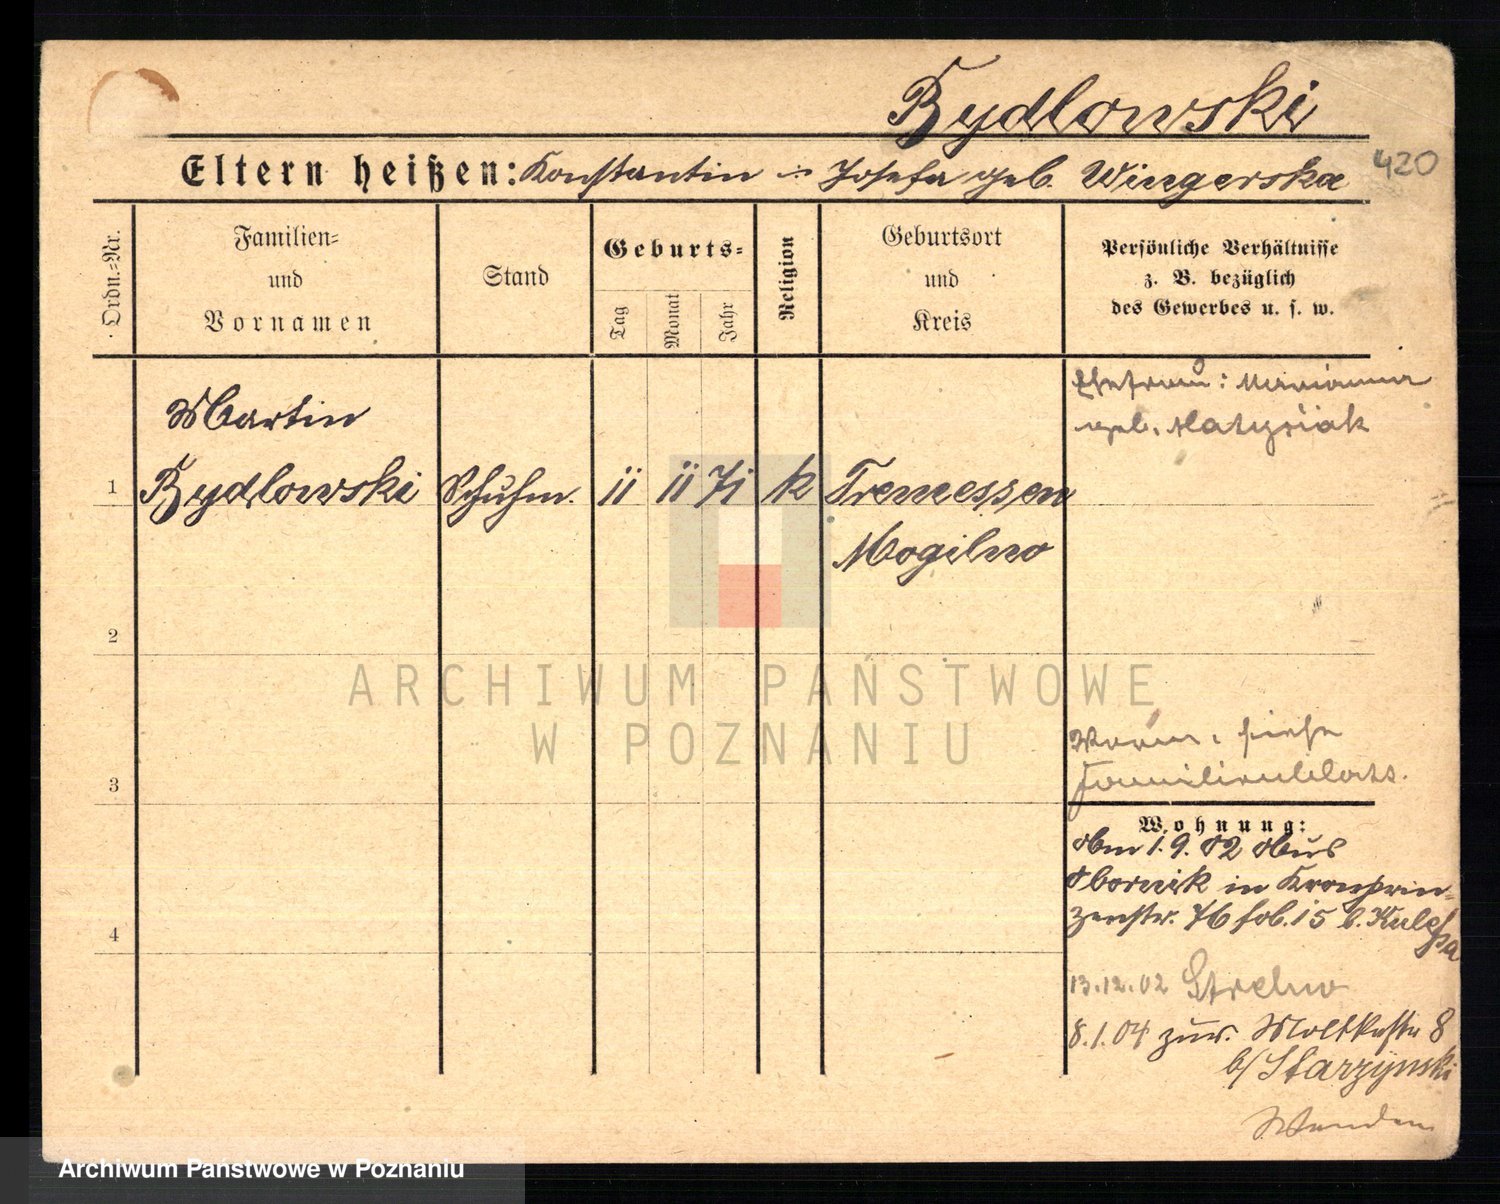 Bydlowski
Eltern heißen: Konstantin u. Josefa geb. Wingerska
420
Ordn.=Nr.
Familien=
und
Vornamen
Stand
Geburts=
Tag
Monat
Jahr
Religion
Geburtsort
und
Kreis
Persönliche Verhältnisse
z. B. bezüglich
des Gewerbes u. s. w.
Martin
1 Bydlowski Schuhm. 11 11 71 k Tremessen
Mogilno
Ehefrau: Marianna
geb. Matysiak
2
3
siehe
Familienblatt.
4
Wohnung:
Am 1.9.02 aus
Obornik in Kronprin=
zenstr. 76 b. Kulessa
13.12.02 Strelno
8.1.04 zur. Moltkestr 8
b/ Starzynski
Wenden
ARCHIWUM PAŃSTWOWE
W POZNANIU
Archiwum Państwowe w Poznaniu